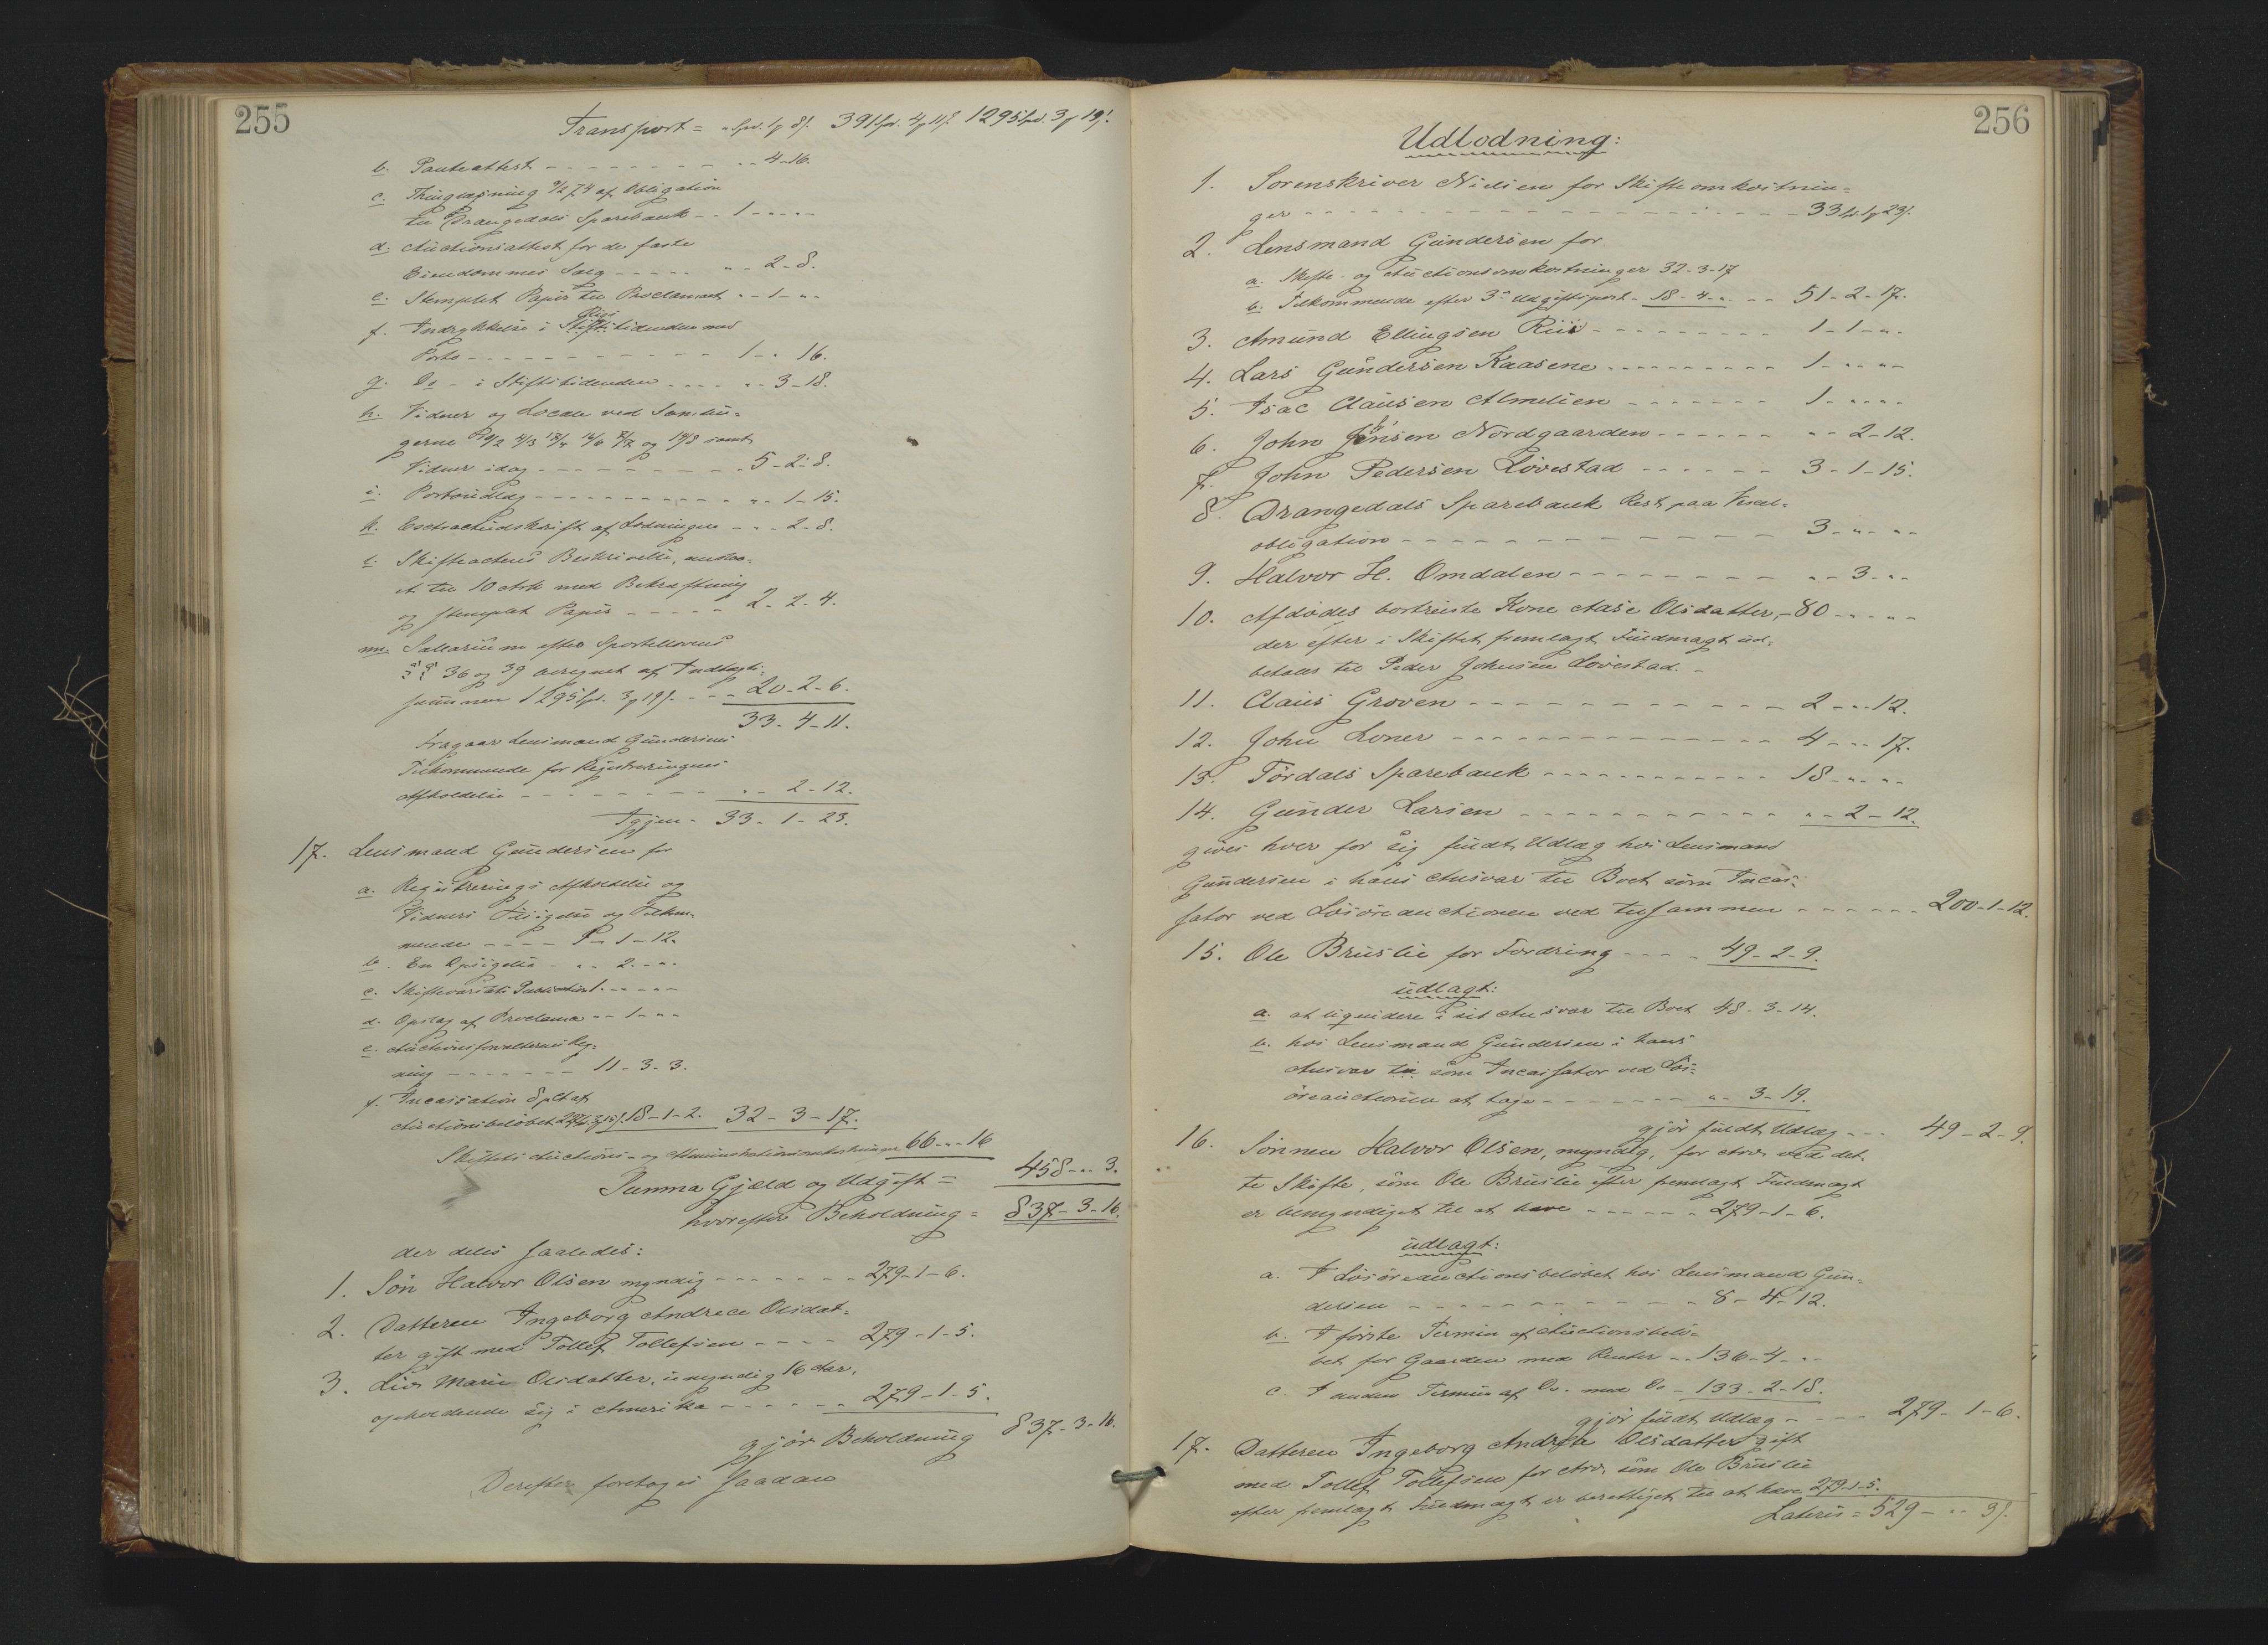 255
Transport = „ Spd. 1 ƒ 8 ẞ. 391 Spd. 4 ƒ 11 ẞ. 1295 Spd. 3 ƒ 19 ẞ.
b. Panteattest - - - - - - - - „ - 4 - 16.
c. Thinglæsning 9/2 74 af Obligation
til Drangedals Sparebank - - 1 - „ - „
d. Auctionsattest for de faste
Eiendommes Salg - - - - - „ - 2 - 8.
e. Stemplet Papir til Proclamaet „ - 1 - „
f. Indrykkelse i Rigstidenden med
Porto - - - - - - - - - - 1 - „ 16.
g. Do - i Stiftstidenden - - - - „ - 3 - 18.
h. Vidner og Locale ved Samlin-
gerne samt
Vidner idag - - - - - - - - - 5 - 2 - 8.
i. Portoudlæg - - - - - - - - - „ - 1 - 15.
k. Extractudskrift af Lodningen - - „ - 2 - 8.
l. Skifteactens Beskrivelse, anslaa-
et til 10 Ark med Bekræftning
og stemplet Papir - - - - - 2 - 2 - 4.
m. Sallarium efter Sportellovens
§§ 36 og 39 beregnet af Indtægts-
summen 1295 Spd. 3 ƒ 19 ẞ. - - - 20 - 2 - 6.
33 - 4 - 11.
Fragaar Lensmand Gundersens
Tilkommende for Registreringens
Afholdelse - - - - - - - - „ - 2 - 12.
Igjen - 33 - 1 - 23.
17. Lensmand Gundersen for
a. Registrerings Afholdelse og
Vidners Tilsigelse og Tilkom-
mende - - - - 1 - 12.
b. En Opsigelse - „ - 2 - „
c. Skiftevarsels Publication 1 - „ - „
d. Opslag af Proclama - „ - 1 - „
e. Auctionsforvalterens Reg-
ning - - - - - - - 11 - 3 - 3.
f. Incassation 8 pCt af
Auctionsbeløbet 18 - 1 - 2. 32 - 3 - 17.
Skiftets Auctions- og Administrationsomkostninger 66 - „ - 16
Summa Gjæld og Udgift = 458 - „ 3.
hvorefter Beholdning = 837 - 3 - 16.
der deles saaledes:
1. Søn Halvor Olsen myndig - - - - - - - 279 - 1 - 6.
2. Datteren Ingeborg Andrea Olsdat-
ter gift med Tollef Tollefsen - - - - 279 - 1 - 5.
3. Liv Marie Olsdatter, umyndig 16 Aar,
opholdende sig i Amerika - - - - - - 279 - 1 - 5.
gjør Beholdning 837 - 3 - 16.
Derefter foretoges saadan
256
Udlodning:
1. Sorenskriver Nielsen for Skifteomkostnin-
ger - - - - - - - - - - - - - - - 33 Spd. 1 ƒ 23 ẞ.
2. Lensmand Gundersen for
a. Skifte- og Auctionsomkostninger 32 - 3 - 17
b. Tilkommende efter 3die Udgiftspost - 18 - 4 - „ - - 51 - 2 - 17.
3. Amund Ellingsen Riis - - - - - - - - - 1 - 1 - „
4. Lars Gundersen Kaasene - - - - - - - - - 1 - „ - „
5. Isac Clausen Almelien - - - - - - - 1 - „ - „
6. John Jensen Nordgaarden - - - - - - „ - 2 - 12.
7. John Pedersen Løvestad - - - - - - 3 - 1 - 15.
8. Drangedals Sparebank Rest paa Vexel-
obligation - - - - - - - - - - - - 3 - „ - „
9. Halvor H. Omdalen - - - - - - - - „ - 3 - „
10. Afdødes bortreiste Kone Aase Olsdatter, - 80 - „ - „
der efter i Skiftet fremlagt Fuldmagt ud-
betales til Peder Johnsen Løvestad. -
11. Claus Groven - - - - - - - - - - - - 2 - „ - 12.
12. John Loner - - - - - - - - - - - - - 4 - „ - 17.
13. Tørdals Sparebank - - - - - - - - - - - 18 - „ - „
14. Gunder Larsen - - - - - - - - - - - „ - 2 - 12.
gives hver for sig fuldt Udlæg hos Lensmand
Gundersen i hans Ansvar til Boet som Incas-
sator ved Løsøreauctionen ved tilsammen - - - - - - 200 - 1 - 12.
15. Ole Bruslie for Fordring - - - - 49 - 2 - 9.
udlagt:
a. at liquidere i sit Ansvar til Boet 48 - 3 - 14.
b. hos Lensmand Gundersen i hans
Ansvar til som Incassator ved Løs-
øreauctionen at tage - - - - - - - „ - 3 - 19.
gjør fuldt Udlæg - - - 49 - 2 - 9.
16. Sønnen Halvor Olsen, myndig, for Arv ved det-
te Skifte, som Ole Bruslie efter fremlagt Fuldmagt
er bemyndiget til at hæve - - - - - - 279 - 1 - 6.
udlagt:
a. I Løsøreauctionsbeløbet hos Lensmand Gun-
dersen - - - - - - - - - - - - 8 - 4 - 12.
b. I første Termin af Auctionsbelø-
bet for Gaarden med Renter - - 136 - 4 - „
c. I anden Termin af Do. med Do - 133 - 2 - 18.
gjør fuldt Udlæg - - - - 279 - 1 - 6.
17. Datteren Ingeborg Andrea Olsdatter gift
med Tollef Tollefsen for Arv, som Ole Bruslie
efter fremlagt Fuldmagt er berettiget til at hæve 279 - 1 - 5.
Lateris = 529 - „ 3 ẞ.